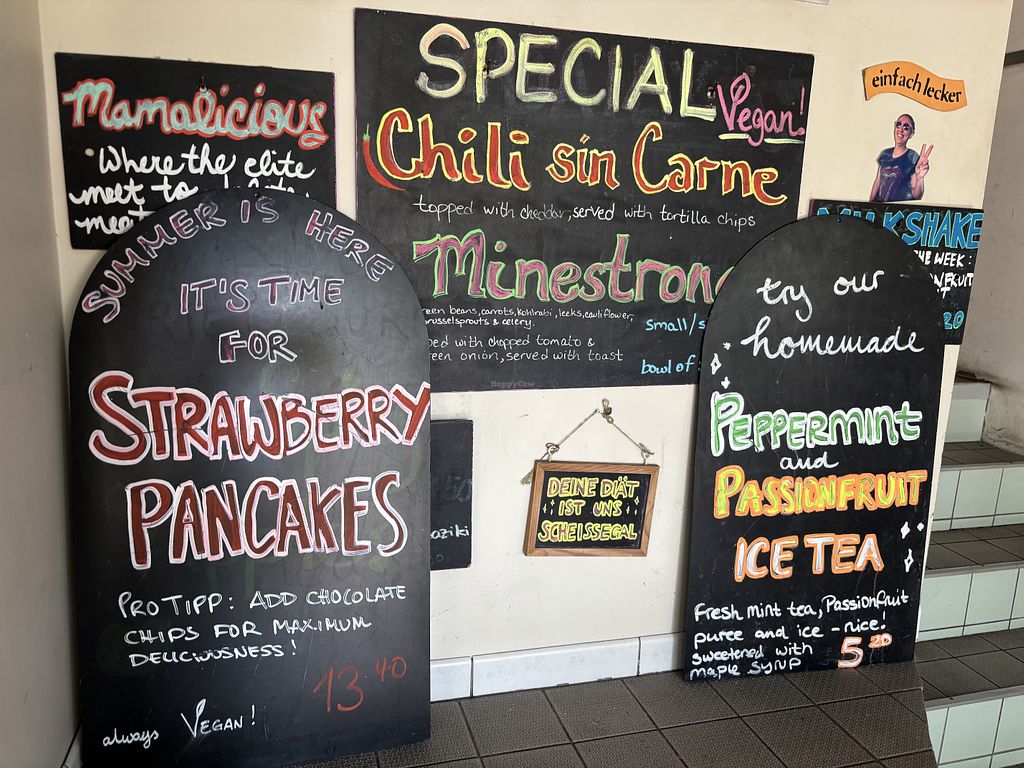 Mamalicious
"Where the elite
meet to
meet
SPECIAL
Vegan!
Chili sin Carne
topped with cheddar, served with tortilla chips
Minestrone
reen beans, carrots, kohlrabi, leeks, cauliflower,
russelsprouts & celery.
ped with chopped tomato &
reen onion, served with toast
small/s
bowl of
einfach lecker
MILKSHAKE
HE WEEK:
NFRUIT
20
SUMMER IS HERE
IT'S TIME
FOR
STRAWBERRY
PANCAKES
PRO TIPP: ADD CHOCOLATE
CHIPS FOR MAXIMUM
DELICIOUSNESS!
13.40
always VEGAN!
aziki
DEINE DIÄT
IST UNS
SCHEISSEGAL
try our
homemade
PEPPERMINT
and
PASSIONFRUIT
ICE TEA
Fresh mint tea, Passionfruit
puree and ice - nice!
sweetened with
maple syrup
5 20
HappyCow